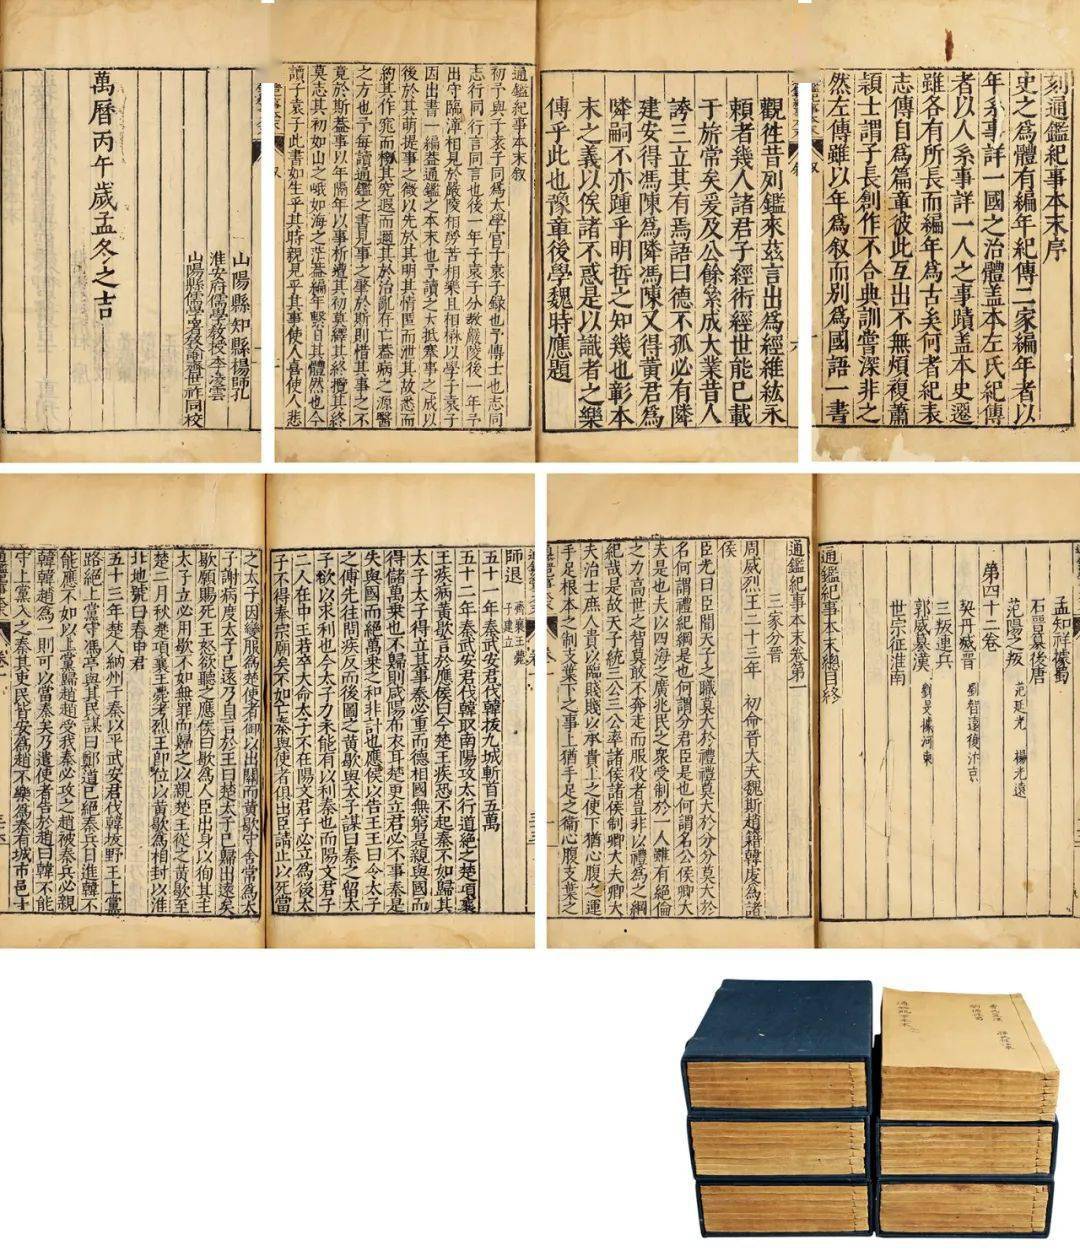 刻通鑑紀事本末序
史之為體有編年紀傳二家編年者以
年系事詳一國之治體盖本左氏紀傳
者以人系事詳一人之事蹟盖本史遷
雖各有所長而編年為古矣何者紀表
志傳自為篇章彼此互出不無煩複蕭
穎士謂子長創作不合典訓嘗深非之
然左傳雖以年為叙而别為國語一書
觀徃昔列鑑來兹言出為經維紘永
頼者幾人諸君子經術經世能已載
于旂常矣爰及公餘彙成大業昔人
誇三立其有焉語曰德不孤必有隣
建安得馮陳為隣馮陳又得黃君為
隣嗣不亦踵乎明哲之知幾也彰本
末之義以俟諸不惑是以識者之樂
傳乎此也豫章後學魏時應題
通鑑紀事本末叙
初予與子袁子同為太學官子袁子録也予慱士也志同
志行同行言同言也後一年子袁子分教嚴陵後一年予
出守臨漳相見於嚴陵相勞苦相樂且相楙以學子袁子
因出書一編葢通鑑之本末也予讀之大抵搴事之成以
後於其萌提事之微以先於其明其情匿而泄其故悉而
約其作窕而槬其究遐而邇其於治亂存亡葢病之源醫
之方也予每讀通鑑之書見事之肇於斯則惜其事之不
竟於斯葢事以年隔年以事析遭其初莫繹其終攬其終
莫志其初如山之峨如海之茫葢編年繫日其體然也今
讀子袁子此書如生乎其時親見乎其事使人喜使人悲
山陽縣知縣楊師孔
淮安府儒學教授李雲
山陽縣儒學署教諭齊世祚同校
萬曆丙午歲孟冬之吉
孟知祥據蜀
石晋簒後唐
第四十二卷
范陽之叛 范延光 楊光遠
契丹滅晋 劉智遠復汴京
三叛連兵
郭威簒漢 劉旻據河東
世宗征淮南
通鑑紀事本末總目終
通鑑紀事本末卷第一
三家分晋
周威烈王二十三年 初命晋大夫魏斯趙籍韓虔為諸
侯
臣光曰臣聞天子之職莫大於禮禮莫大於分分莫大於
名何謂禮紀綱是也何謂分君臣是也何謂名公侯卿大
夫是也夫以四海之廣兆民之衆受制於一人雖有絕倫
之力高世之智莫敢不奔走而服役者豈非以禮為之綱
紀哉是故天子統三公三公率諸侯諸侯制卿大夫卿大
夫治士庶人貴以臨賤賤以承貴上之使下猶心腹之運
手足根本之制支葉下之事上猶手足之衛心腹支葉之
師退 齊襄王薨子建立
五十一年秦武安君伐韓拔九城斬首五萬
五十二年秦武安君伐韓取南陽攻太行道絕之楚項襄
王疾病黃歇言於應侯曰今楚王疾恐不起秦不如歸其
太子太子得立其事秦必重而德相國無窮是親與國而
得儲萬乗也不歸則咸陽布衣耳楚更立君必不事秦是
失與國而絕萬乗之和非計也應侯以告王王曰令太子
之傅先往問疾反而後圖之黃歇與太子謀曰秦之留太
子欲以求利也今太子力未能有以利秦也而陽文君子
二人在中王若卒大命太子不在陽文君子必立為後太
子不得奉宗廟矣不如亡秦與使者俱出臣請止以死當
之太子因變服為楚使者御以出關而黃歇守舍常為太
子謝病度太子已遠乃自言於王曰楚太子已歸出遠矣
歇願賜死王怒欲聽之應侯曰歇為人臣出身以徇其主
太子立必用歇不如無罪而歸之以親楚王從之黃歇至
楚三月秋楚項襄王薨考烈王即位以黃歇為相封以淮
北地號曰春申君
五十三年楚人納州于秦以平武安君伐韓拔野王上黨
路絕上黨守馮亭與其民謀曰鄭道已絕秦兵日進韓不
能應不如以上黨歸趙趙受我秦必攻之趙被秦兵必親
韓韓趙為一則可以當秦矣乃遣使者告於趙曰韓不能
守上黨入之秦其吏民皆安為趙不樂為秦有城市邑十